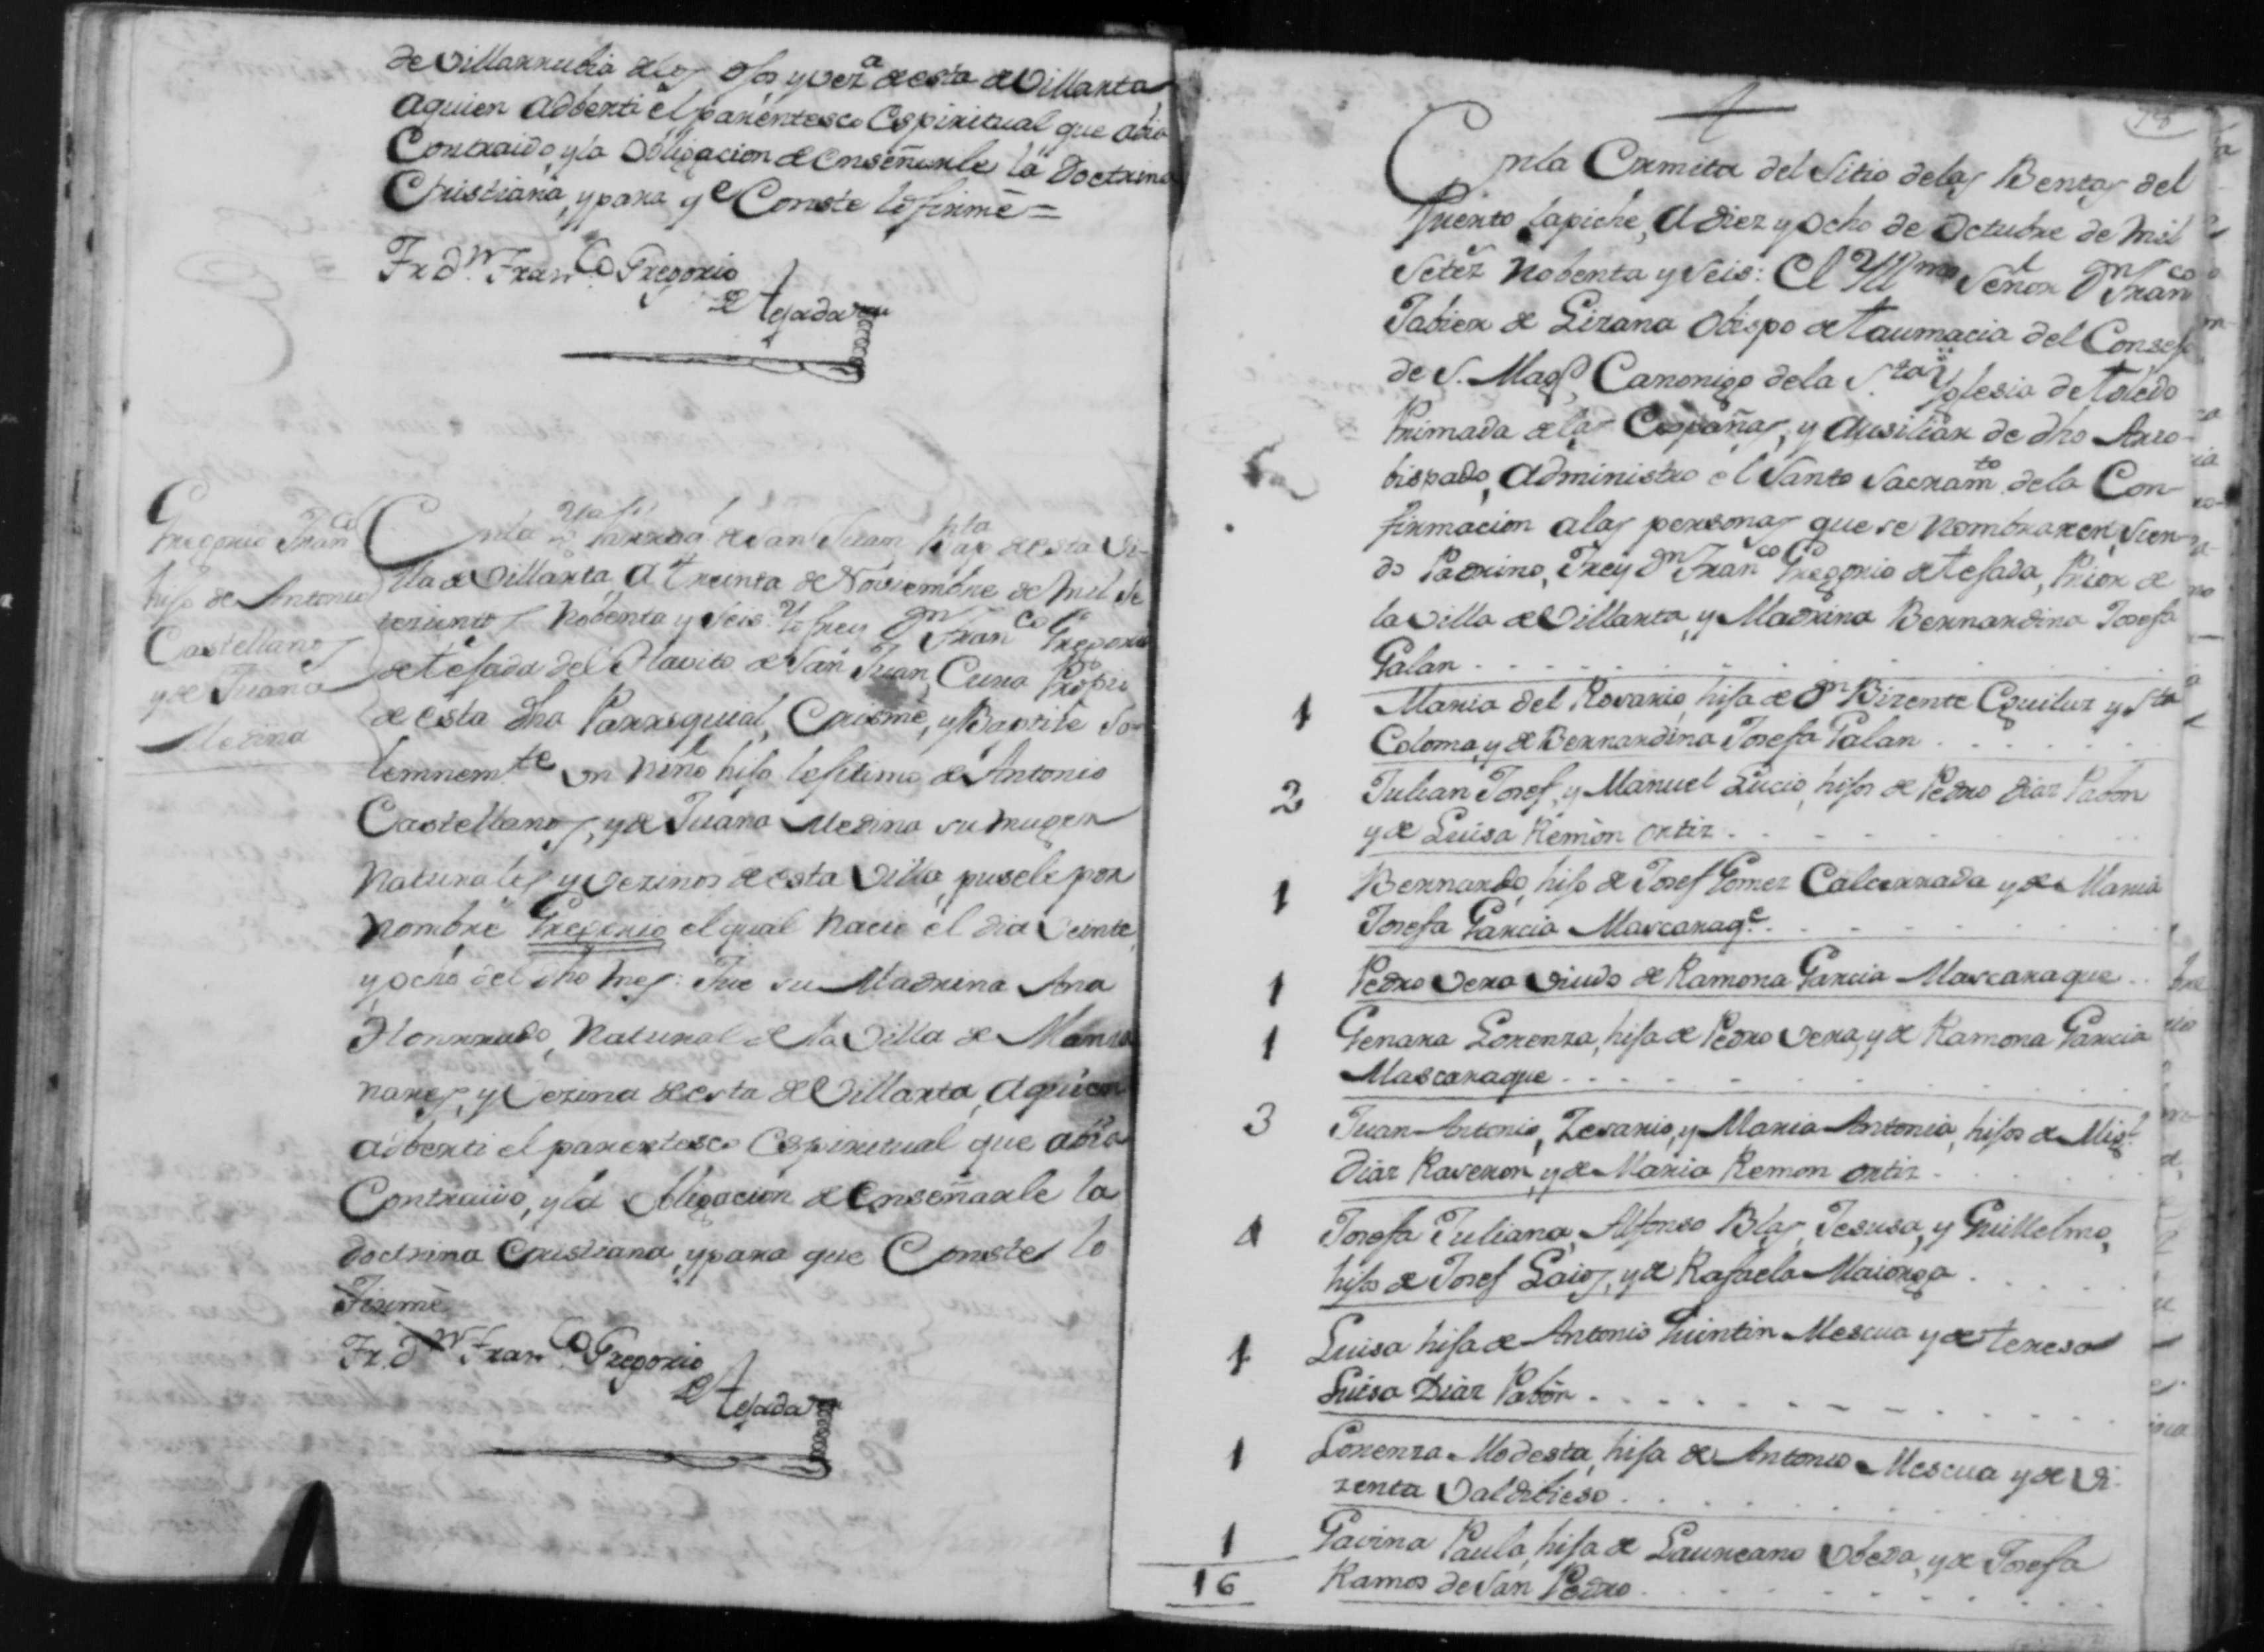 de Villarrubia de los Ojos, y vez.ª de esta de Villarta
a quien adberti el parentesco Espiritual que abia
Contraido, y la Obligacion de enseñarle la Doctrina
Christiana, y para q.e Conste lo firmè =
Fr. D.n Fran.co Gregorio
de Tejada
Gregorio Fran.co
hijo de Antonio
Castellanos
y de Juana
Medina
En la Parroq.l de San Juan Bap.ta de esta Vi-
lla de Villarta, a treinta de Noviembre de mil se
tecientos Nobenta y Seis: Yo frey D.n Fran.co Gregorio
de Tejada del Havito de San Juan, Cura Propio
de esta dha Parroquial, Crismè, y Baptizè So-
lemnem.te un niño hijo lejitimo de Antonio
Castellanos, y de Juana Medina su muger
Naturales y vezinos de esta Villa, pusele por
nombre Gregorio el qual nació el dia veinte
y ocho del dho mes: Fue su Madrina Ana
Honrrado, Natural de la Villa de Manza
nares, y Vezina de esta de Villarta, a quien
adberti el parentesco Espiritual que abia
Contraido, y la Obligacion de Enseñarle la
doctrina Cristiana, y para que Conste lo
Firmè
Fr. D.n Fran.co Gregorio
de Tejada
En la Ermita del Sitio de las Bentas del
Puerto Lapiche, a diez y ocho de Octubre de mil
Setez.s Nobenta y Seis: El Yll.mo Señor D.n Fran.co
Jabier de Lizana Obispo de Taumacia del Consejo
de S. Mag.d, Canonigo de la S.ta Yglesia de Toledo
Primada de las Españas, y Ausiliar de dho Arzo-
bispado, administro el Santo Sacram.to de la Con-
firmacion a las personas que se nombraren, sien-
do Padrino, Frey D.n Fran.co Gregorio de Tejada, Prior de
la Villa de Villarta, y Madrina Bernardina Josefa
Galan . . . . . .
1 Maria del Rosario, hija de D.n Bizente Eguiluz y S.ta
Coloma, y de Bernardina Josefa Galan . . . . .
2 Julian Josef, y Manuel Lucio, hijos de Pedro Diaz Pabon
y de Luisa Remon Ortiz . . . . .
1 Bernardo, hijo de Josef Gomez Calcerrada y de Maria
Josefa Garcia Mascaraq.e . . . . .
1 Pedro Vera Viudo de Ramona Garcia Mascaraque . .
1 Genara Lorenza, hija de Pedro Vera, y de Ramona Garcia
Mascaraque . . . . . .
3 Juan Antonio, Zesario, y Maria Antonia, hijos de Mig.l
Diaz Raveron, y de Maria Remon Ortiz . . . .
4 Josefa Juliana, Alfonso Blas, Jesusa, y Guillelmo,
hijos de Josef Laios, y de Rafaela Maiorga . . . .
1 Luisa hija de Antonio Quintin Mescua y de Teresa
Luisa Diaz Pabon . . . . . .
1 Lorenza Modesta, hija de Antonio Mescua y de Vi-
zenta Valdibieso . . . . . .
1 Gavina Paula, hija de Laureano Obeda, y de Josefa
16 Ramos de San Pedro . . . . . .